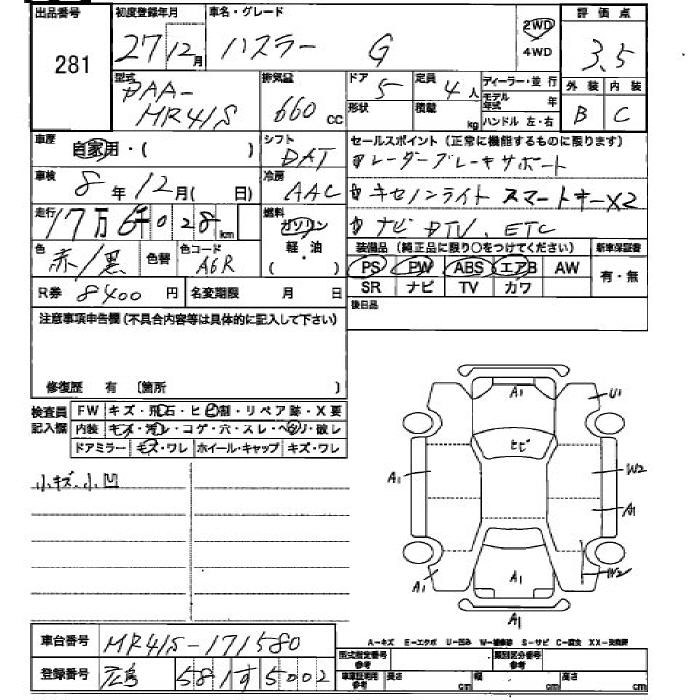 出品番号
281
初度登録年月
27年12月
車名・グレード
ハスラー G
2WD
4WD
評価点
3.5
外装 内装
B C
型式
DAA-
MR41S
排気量
660 cc
ドア
5
定員
4人
形状
積載
kg
ディーラー・並行
モデル年式 年
ハンドル 左・右
車歴
自家用・( )
シフト
DAT
セールスポイント(正常に機能するものに限ります)
レーダーブレーキサポート
キセノンライト スマートキーX2
ナビ DTV、ETC
車検
8年12月( 日)
冷房
AAC
走行
17万6千028km
燃料
ガソリン
軽・油
( )
色
赤/黒
色替
色コード
A6R
装備品(純正品に限り○をつけてください)
PS PW ABS エアB AW
SR ナビ TV カワ
新車保証書
有・無
R券 8400円
名変期限 月 日
後日品
注意事項申告欄(不具合内容等は具体的に記入して下さい)
修復歴 有 〔箇所 〕
検査員
記入欄
FW キズ・飛石・ヒビ割・リペア跡・X要
内装 キズ・汚レ・コゲ・穴・スレ・ヘタリ・破レ
ドアミラー キズ・ワレ ホイール・キャップ キズ・ワレ
小キズ、小凹
A1
U1
ヒビ
A1
W2
A1
A1
A1
W2
A-キズ E-エクボ U-凹み W-補修跡 S-サビ C-腐食 XX-交換済
車台番号
MR41S-171580
登録番号
広島 581 す 5002
型式指定番号
参考
類別区分番号
参考
車庫証明用
参考
長さ cm
幅 cm
高さ cm